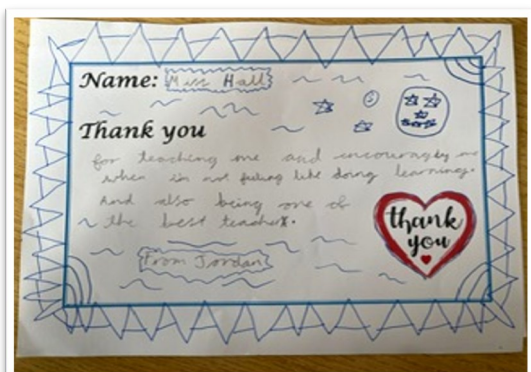 Name: Miss Hall
Thank you
for teaching me and encouragby me
when im not feeling like doing learning.
And also being one of
the best teachers.
thank
you
From Jordan